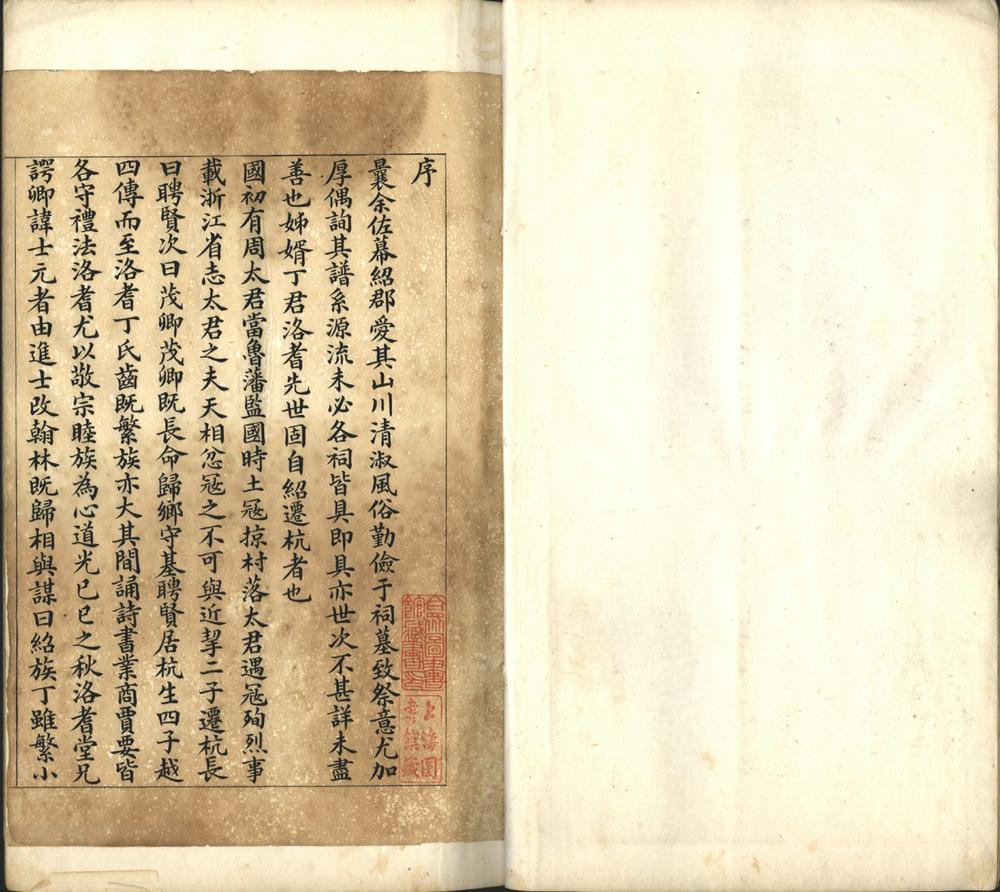 序
曩余佐幕紹郡愛其山川清淑風俗勤儉于祠墓致祭意尤加
厚偶詢其譜系源流未必各祠皆具即具亦世次不甚詳未盡
善也姊婿丁君洛耆先世固自紹遷杭者也
國初有周太君當魯藩監國時土冦掠村落太君遇冦殉烈事
載浙江省志太君之夫天相忿冦之不可與近挈二子遷杭長
曰聘賢次曰茂卿茂卿既長命歸鄉守基聘賢居杭生四子越
四傳而至洛耆丁氏齒既繁族亦大其間誦詩書業商賈要皆
各守禮法洛耆尤以敬宗睦族為心道光已巳之秋洛耆堂兄
諤卿諱士元者由進士改翰林既歸相與謀曰紹族丁雖繁小
圖書
館藏書
上海圖
書館藏